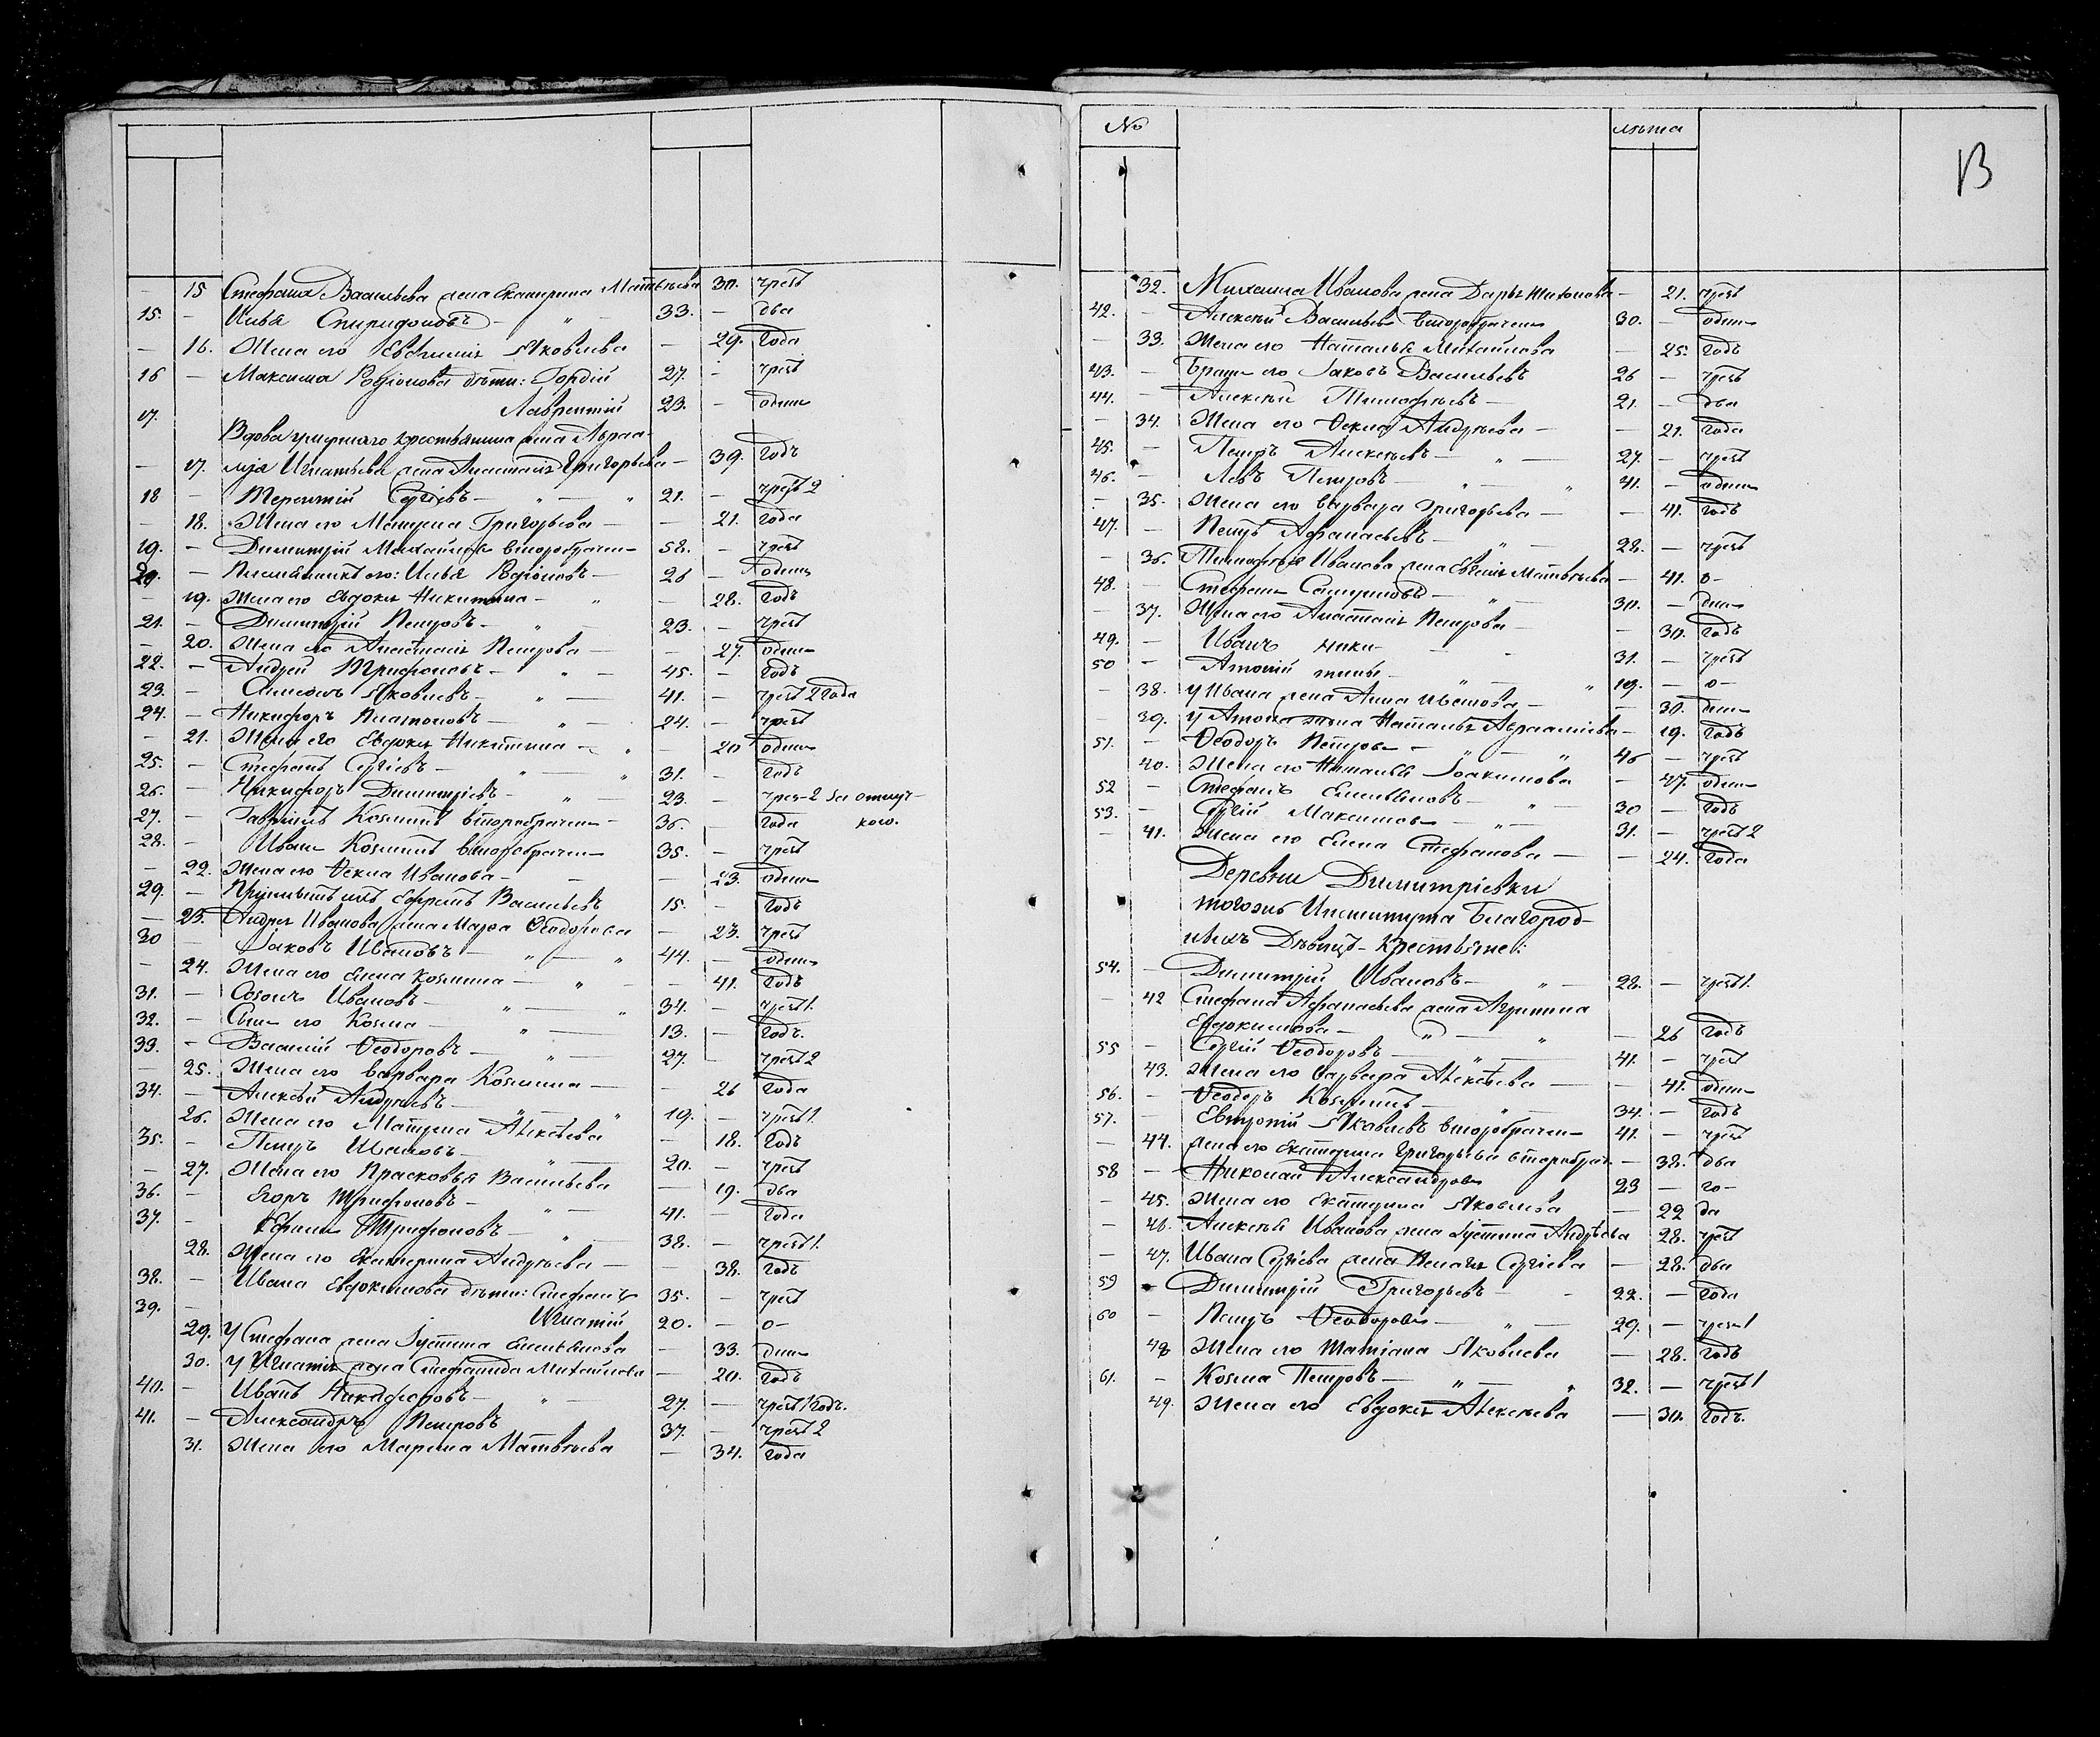 15 Стефана Васильева жена Екатерина Матвѣева 30. чрезъ
15. - Илья Спиридоновъ - " - 33. - два
- 16. Жена его Евфимія Яковлева - 29. года
16 - Максима Родіонова дѣти: Гордій 27. - чрезъ
17. Лаврентій 23. - одинъ
Вдова умершаго крестьянина жена Авраа-
- 17. мія Игнатьева жена Анастасія Григорьева - 39. годъ
18 - Терентій Сергіевъ - " - " 21. - чрезъ 2
- 18. Жена его Матрена Григорьева - - 21. года
19. - Димитрій Михайловъ второбрачен 58. - чрезъ
20. - Племянникъ его: Илья Родіоновъ - 26 - одинъ
- 19. Жена его Евдокія Никитина - " - 28. годъ
21. - Димитрій Петровъ - " - 23. - чрезъ
- 20. Жена его Анастасія Петрова - - 27. одинъ
22. - Андрей Трифоновъ - " - 45. - годъ
23. - Симеонъ Яковлевъ - " - 41. - чрезъ 2 года
24. - Никифоръ Платоновъ - " - 24. - чрезъ
- 21. Жена его Евдокія Никитина - " - 20 одинъ
25. - Стефанъ Сергіевъ - " - " 31. - годъ
26. - Никифоръ Димитріевъ - " - 23. - чрез-2 за отлуч-
27. - Гавріилъ Козминъ второбрачен - 36. - года кою.
28. - Иванъ Козминъ второбрачен 35. - чрезъ
- 22. Жена его Ѳекла Иванова - - - 23. одинъ
29. - Ефремъ Васильевъ 15. - годъ
- 23. Андрея Иванова жена Марѳа Ѳеодорова - 23. чрезъ
30 - Іаковъ Ивановъ - " - " 44. - одинъ
- 24. Жена его Елена Козмина - " - - 41. годъ
31. - Созонъ Ивановъ - " - " 34. - чрезъ 1.
32. - Сынъ его Козма - " - 13. - годъ.
33. - Василій Ѳеодоровъ - " - 27. - чрезъ 2
- 25. Жена его Варвара Козмина - - 26 года
34. - Алексѣй Андреевъ - " - " 19. - чрезъ 1.
26. Жена его Матрена Алексѣева - 18. годъ
35. - Петръ Ивановъ - " - 20. - чрезъ
- 27. Жена его Прасковья Васильева - 19. два
36. - Егоръ Трифоновъ - " - 41. - года
37. - Ефремъ Трифоновъ - " - 38. - чрезъ 1.
28. Жена его Екатерина Андреева - - 38. годъ
38. - Ивана Евдокимова дѣти: Стефанъ 35. - чрезъ
39. - Игнатій 20. - о-
29. У Стефана жена Іустина Емельянова - 33. динъ
30. У Игнатія жена Стефанида Михайлова - 20. годъ
40. - Иванъ Никифоровъ - " - 27. - чрезъ 1 годъ.
41. - Александръ Петровъ 37. - чрезъ 2
31. Жена его Марина Матвѣева - 34. года
№ лѣта
13
32. Михаила Иванова жена Дарья Тихонова - 21. чрезъ
42. - Алексѣй Васильевъ второбрачен 30. - одинъ
- 33. Жена его Наталья Михайлова - 25. годъ
43. - Братъ его Іаковъ Васильевъ 26 - чрезъ
44. - Алексѣй Тимофѣевъ - 21. - два
- 34. Жена его Ѳекла Андреева - - 21. года
45. - Петръ Алексѣевъ - " - 27. - чрезъ
46. - Левъ Петровъ - " " 41. - одинъ
- 35. Жена его Варвара Григорьева - - 41. годъ
47. - Петръ Афанасьевъ - " - 28. - чрезъ
- 36. Тимофея Иванова жена Евгенія Матвѣева - 41. о-
48. - Стефанъ Самуиловъ - " - 30. - динъ
- 37. Жена его Анастасія Петрова - - 30. годъ
49. - Иванъ Ники- - - 31. - чрезъ
50 - Антоній тины - " - " 19. - о-
- 38. У Ивана жена Анна Иванова - - 30. динъ
- 39. У Антона жена Наталья Авраамова - 19. годъ
51. - Ѳеодоръ Петровъ - " - " 46 - чрезъ
40. Жена его Наталья Іоакимова - 47. одинъ
52 - Стефанъ Емельяновъ - " - 30 - годъ
53. - Сергій Максимовъ - " - 31. - чрезъ 2
- 41. Жена его Елена Стефанова - - 24. года
Деревни Димитріевки
тогожъ Института Благород-
ныхъ Дѣвицъ - Крестьяне:
54. - Димитрій Ивановъ - " - 28. - чрезъ 1.
42 Стефана Афанасьева жена Агрипина
Евдокимова - " - " - 26 годъ
55 - Сергій Ѳеодоровъ - " - 41. - чрезъ
43. Жена его Варвара Алексѣева - - 41. одинъ
56. - Ѳеодоръ Козминъ - " - 34. - годъ
57. - Евтропій Яковлевъ второбрачен 41. - чрезъ
- 44. Жена его Екатерина Григорьева второбрач - 38. два
58 - Николай Александровъ 23 - го-
- 45. Жена его Екатерина Яковлева - 22 да
- 46. Алексѣя Иванова жена Іустина Андреева 28. чрезъ
- 47. Ивана Сергіева жена Пелагія Сергіева - 28. два
59 - Димитрій Григорьевъ - - 22. - года
60 - Петръ Ѳеодоровъ - " - 29. - чрезъ 1
48 Жена его Татіана Яковлева - 28. годъ
61. - Козма Петровъ - " - " 32. - чрезъ 1
49. Жена его Евдокія Алексѣева - 30. годъ.